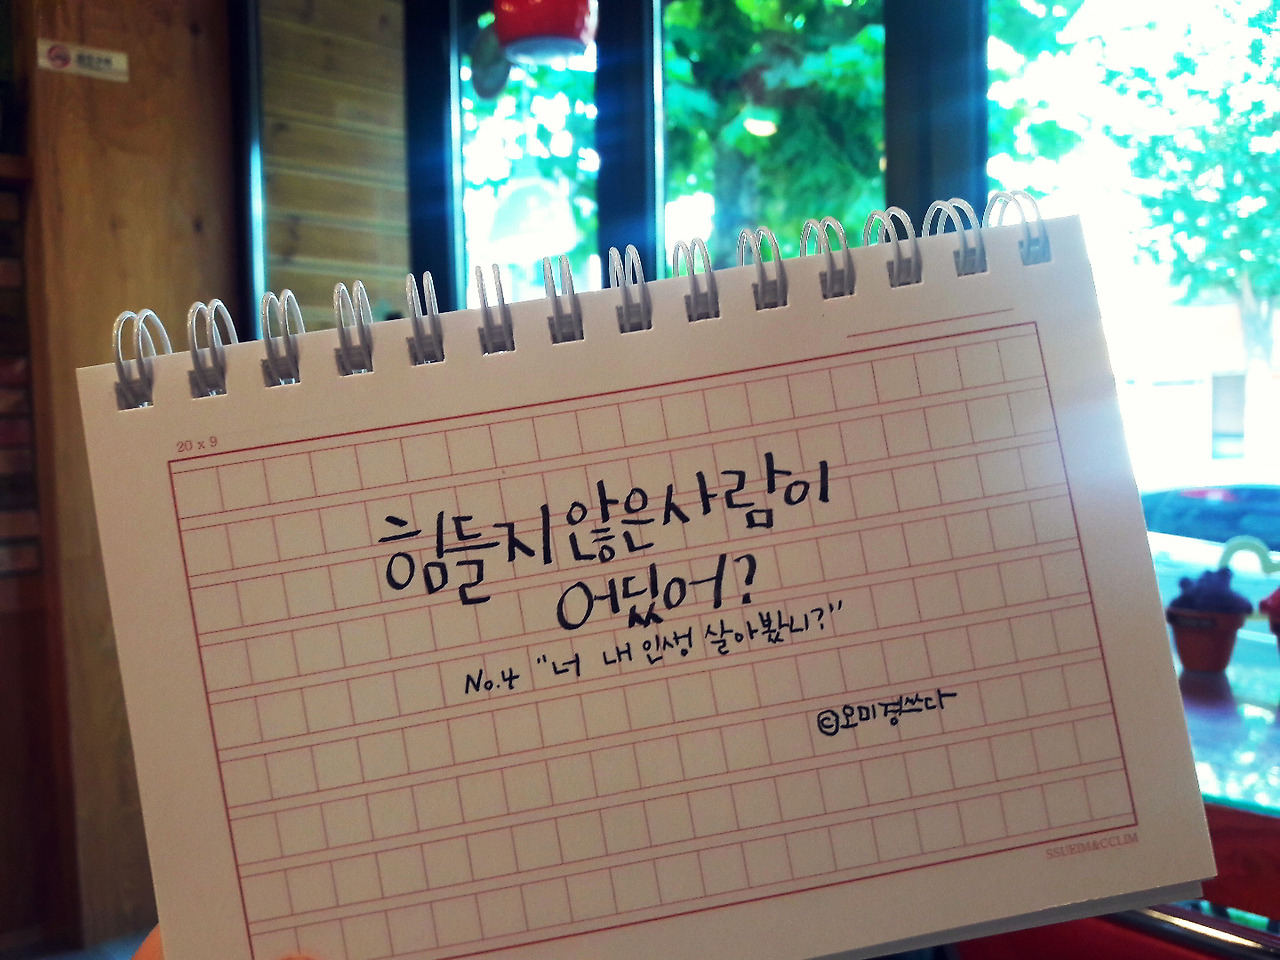 20 x 9
힘들지 않은 사람이
어딨어?
No.4 "너 내 인생 살아봤니?"
©오미경쓰다
SSUEIM&CCLIM